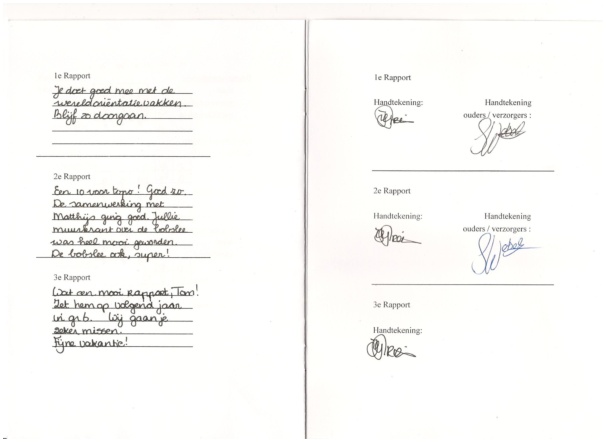 1e Rapport
Je doet goed mee met de
wereldoriëntatie vakken.
Blijf zo doorgaan.
2e Rapport
Een 10 voor topo! Goed zo.
De samenwerking met
Matthijs ging goed. Jullie
muurkrant over de bobslee
was heel mooi geworden.
De bobslee ook, super!
3e Rapport
Wat een mooi rapport, Tom!
Zet hem op volgend jaar
in gr6. Wij gaan je
zeker missen.
Fijne vakantie!
1e Rapport
Handtekening:
Handtekening
ouders / verzorgers :
2e Rapport
Handtekening:
Handtekening
ouders / verzorgers :
3e Rapport
Handtekening: